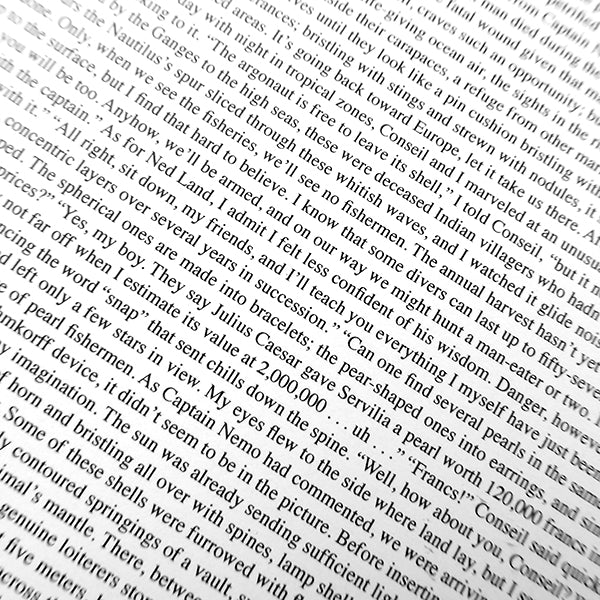 from Captain
man died during the
fatal wound given that
craves such an opportunity;
giving ocean air, the sights in the
side their carapaces, a refuge from other
until they look like a pin cushion bristling with
bristling with stings and strewn with nodules, it
areas. It's going back toward Europe, let it take us there.
with night in tropical zones. Conseil and I marveled at an unusu
king to it. “The argonaut is free to leave its shell,” I told Conseil, “but it
by the Ganges to the high seas, these were deceased Indian villagers who hadn
the Nautilus's spur sliced through these whitish waves, and I watched it glide nois
Only, when we see the fisheries, we'll see no fishermen. The annual harvest hasn't yet
to the surface, but I find that hard to believe. I know that some divers can last up to fifty-seve
you will be too. Anyhow, we'll be armed, and on our way we might hunt a man-eater or two. I
h the captain.” As for Ned Land, I admit I felt less confident of his wisdom. Danger, howeve
with it.” “All right, sit down, my friends, and I'll teach you everything I myself have just been
concentric layers over several years in succession.” “Can one find several pearls in the sam
ped. The spherical ones are made into bracelets; the pear-shaped ones into earrings, and sin
prices?” “Yes, my boy. They say Julius Caesar gave Servilia a pearl worth 120,000 francs i
not far off when I estimate its value at 2,000,000 . . . uh . . .” “Francs!” Conseil said quick
ncing the word “snap” that sent chills down the spine. “Well, how about you, Conseil?
d left only a few stars in view. My eyes flew to the side where land lay, but I s
e of pearl fishermen. As Captain Nemo had commented, we were arrivin
hmkorff device, it didn't seem to be in the picture. Before insertin
y imagination. The sun was already sending sufficient ligh
f horn and bristling all over with spines, lamp shell
Some of these shells were furrowed with
ly contoured springings of a vault,
imal's mantle. There, between
genuine loiterers
five meters,
across